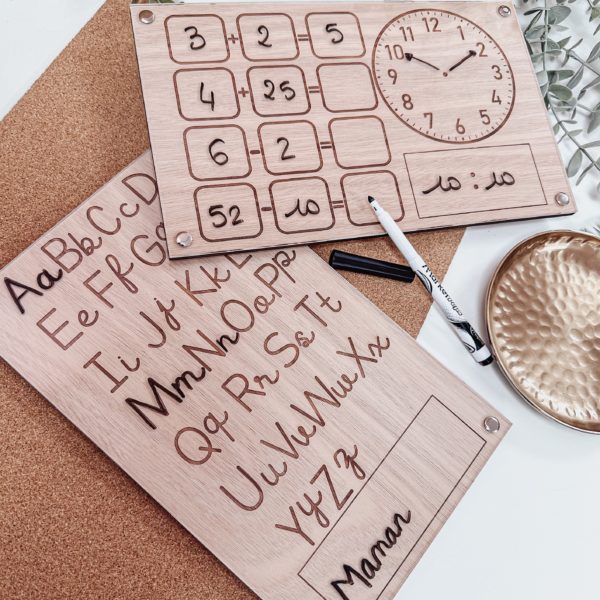 3 + 2 = 5
4 + 25 =
6 - 2 =
52 - 10 =
12 1 2 3 4 5 6 7 8 9 10 11
10 : 10
Aa Bb Cc D
Ee Ff G
Ii Jj Kk L
Mm Nn Oo Pp
Qq Rr Ss Tt
Uu Vv Ww Xx
Yy Zz
Maman